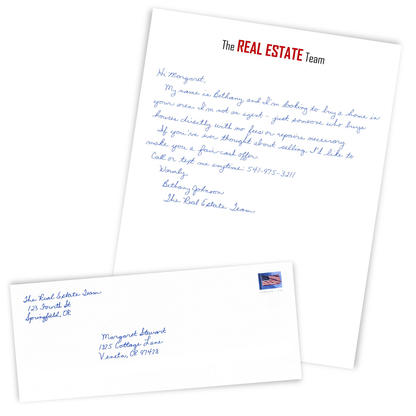 The REAL ESTATE Team
Hi Margaret,
My name is Bethany and I'm looking to buy a home in
your area. I'm not an agent - just someone who buys
houses directly with no fees or repairs necessary.
If you've ever thought about selling, I'd like to
make you a fair cash offer.
Call or text me anytime: 541-975-3211
Warmly,
Bethany Johnson
The Real Estate Team
The Real Estate Team
123 Fourth St
Springfield, OR
Margaret Stewart
1325 Cottage Lane
Veneta, OR 97478